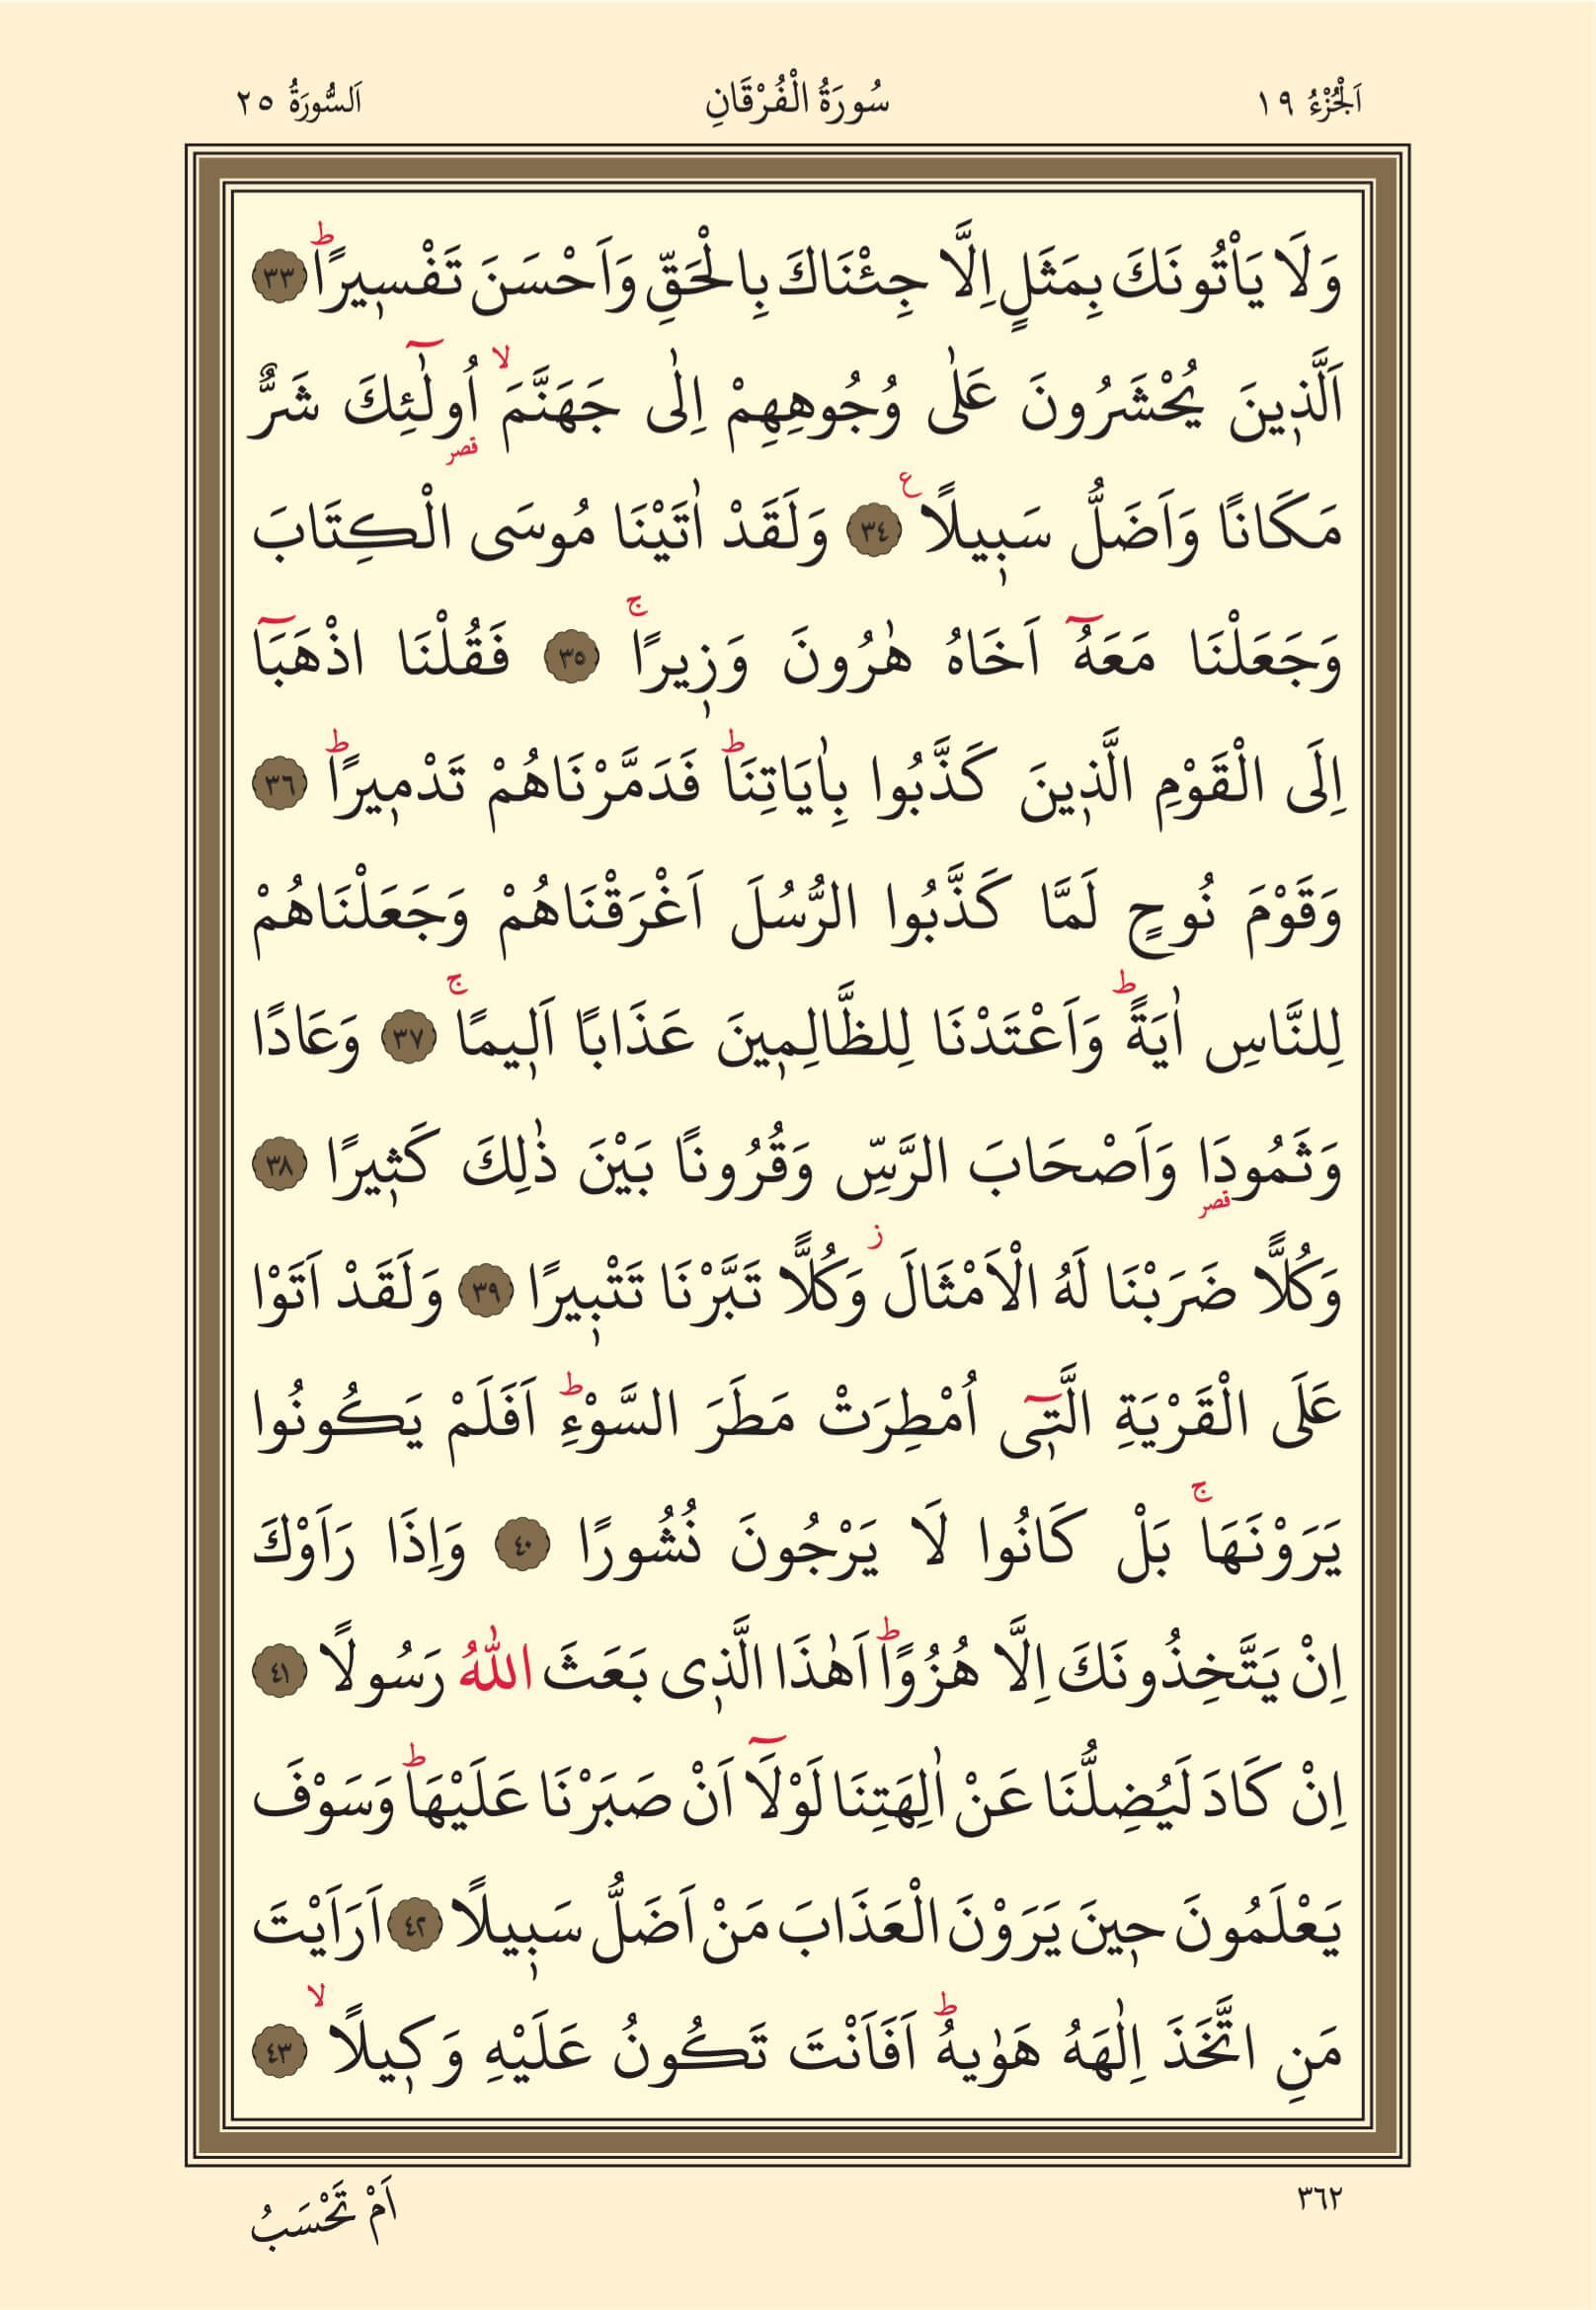 اَلْجُزْءُ ١٩
سُورَةُ الْفُرْقَانِ
اَلسُّورَةُ ٢٥
وَلَا يَأْتُونَكَ بِمَثَلٍ اِلَّا جِئْنَاكَ بِالْحَقِّ وَاَحْسَنَ تَفْسٖيرًاؕ ٣٣
اَلَّذٖينَ يُحْشَرُونَ عَلٰى وُجُوهِهِمْ اِلٰى جَهَنَّمَۙ اُولٰٓئِكَ شَرٌّ
قصر
مَكَانًا وَاَضَلُّ سَبٖيلًا ع ٣٤ وَلَقَدْ اٰتَيْنَا مُوسَى الْكِتَابَ
وَجَعَلْنَا مَعَهُٓ اَخَاهُ هٰرُونَ وَزٖيرًاۚ ٣٥ فَقُلْنَا اذْهَبَٓا
اِلَى الْقَوْمِ الَّذٖينَ كَذَّبُوا بِاٰيَاتِنَاؕ فَدَمَّرْنَاهُمْ تَدْمٖيرًاؕ ٣٦
وَقَوْمَ نُوحٍ لَمَّا كَذَّبُوا الرُّسُلَ اَغْرَقْنَاهُمْ وَجَعَلْنَاهُمْ
لِلنَّاسِ اٰيَةًؕ وَاَعْتَدْنَا لِلظَّالِمٖينَ عَذَابًا اَلٖيمًاۚ ٣٧ وَعَادًا
وَثَمُودَا وَاَصْحَابَ الرَّسِّ وَقُرُونًا بَيْنَ ذٰلِكَ كَثٖيرًا ٣٨
قصر
وَكُلًّا ضَرَبْنَا لَهُ الْاَمْثَالَؗ وَكُلًّا تَبَّرْنَا تَتْبٖيرًا ٣٩ وَلَقَدْ اَتَوْا
عَلَى الْقَرْيَةِ الَّتٖٓى اُمْطِرَتْ مَطَرَ السَّوْءِؕ اَفَلَمْ يَكُونُوا
يَرَوْنَهَاۚ بَلْ كَانُوا لَا يَرْجُونَ نُشُورًا ٤٠ وَاِذَا رَاَوْكَ
اِنْ يَتَّخِذُونَكَ اِلَّا هُزُوًاؕ اَهٰذَا الَّذٖى بَعَثَ اللّٰهُ رَسُولًا ٤١
اِنْ كَادَ لَيُضِلُّنَا عَنْ اٰلِهَتِنَا لَوْلَٓا اَنْ صَبَرْنَا عَلَيْهَاؕ وَسَوْفَ
يَعْلَمُونَ حٖينَ يَرَوْنَ الْعَذَابَ مَنْ اَضَلُّ سَبٖيلًا ٤٢ اَرَاَيْتَ
مَنِ اتَّخَذَ اِلٰهَهُ هَوٰيهُؕ اَفَاَنْتَ تَكُونُ عَلَيْهِ وَكٖيلًاۙ ٤٣
٣٦٢
اَمْ تَحْسَبُ